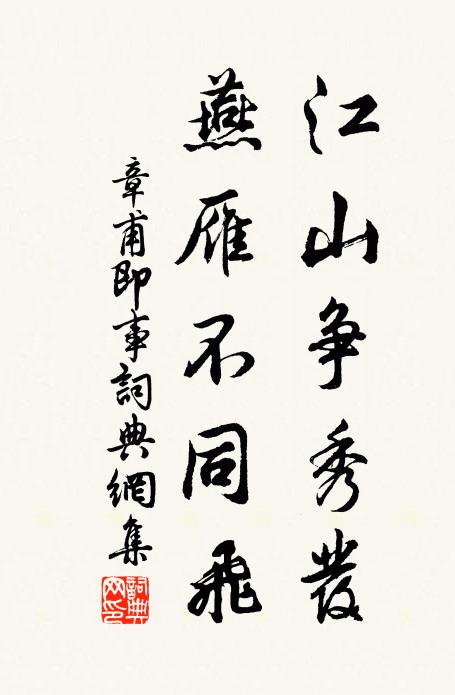 江山争秀發
燕雁不同飛
章甫即事詞典網集
詞典网印